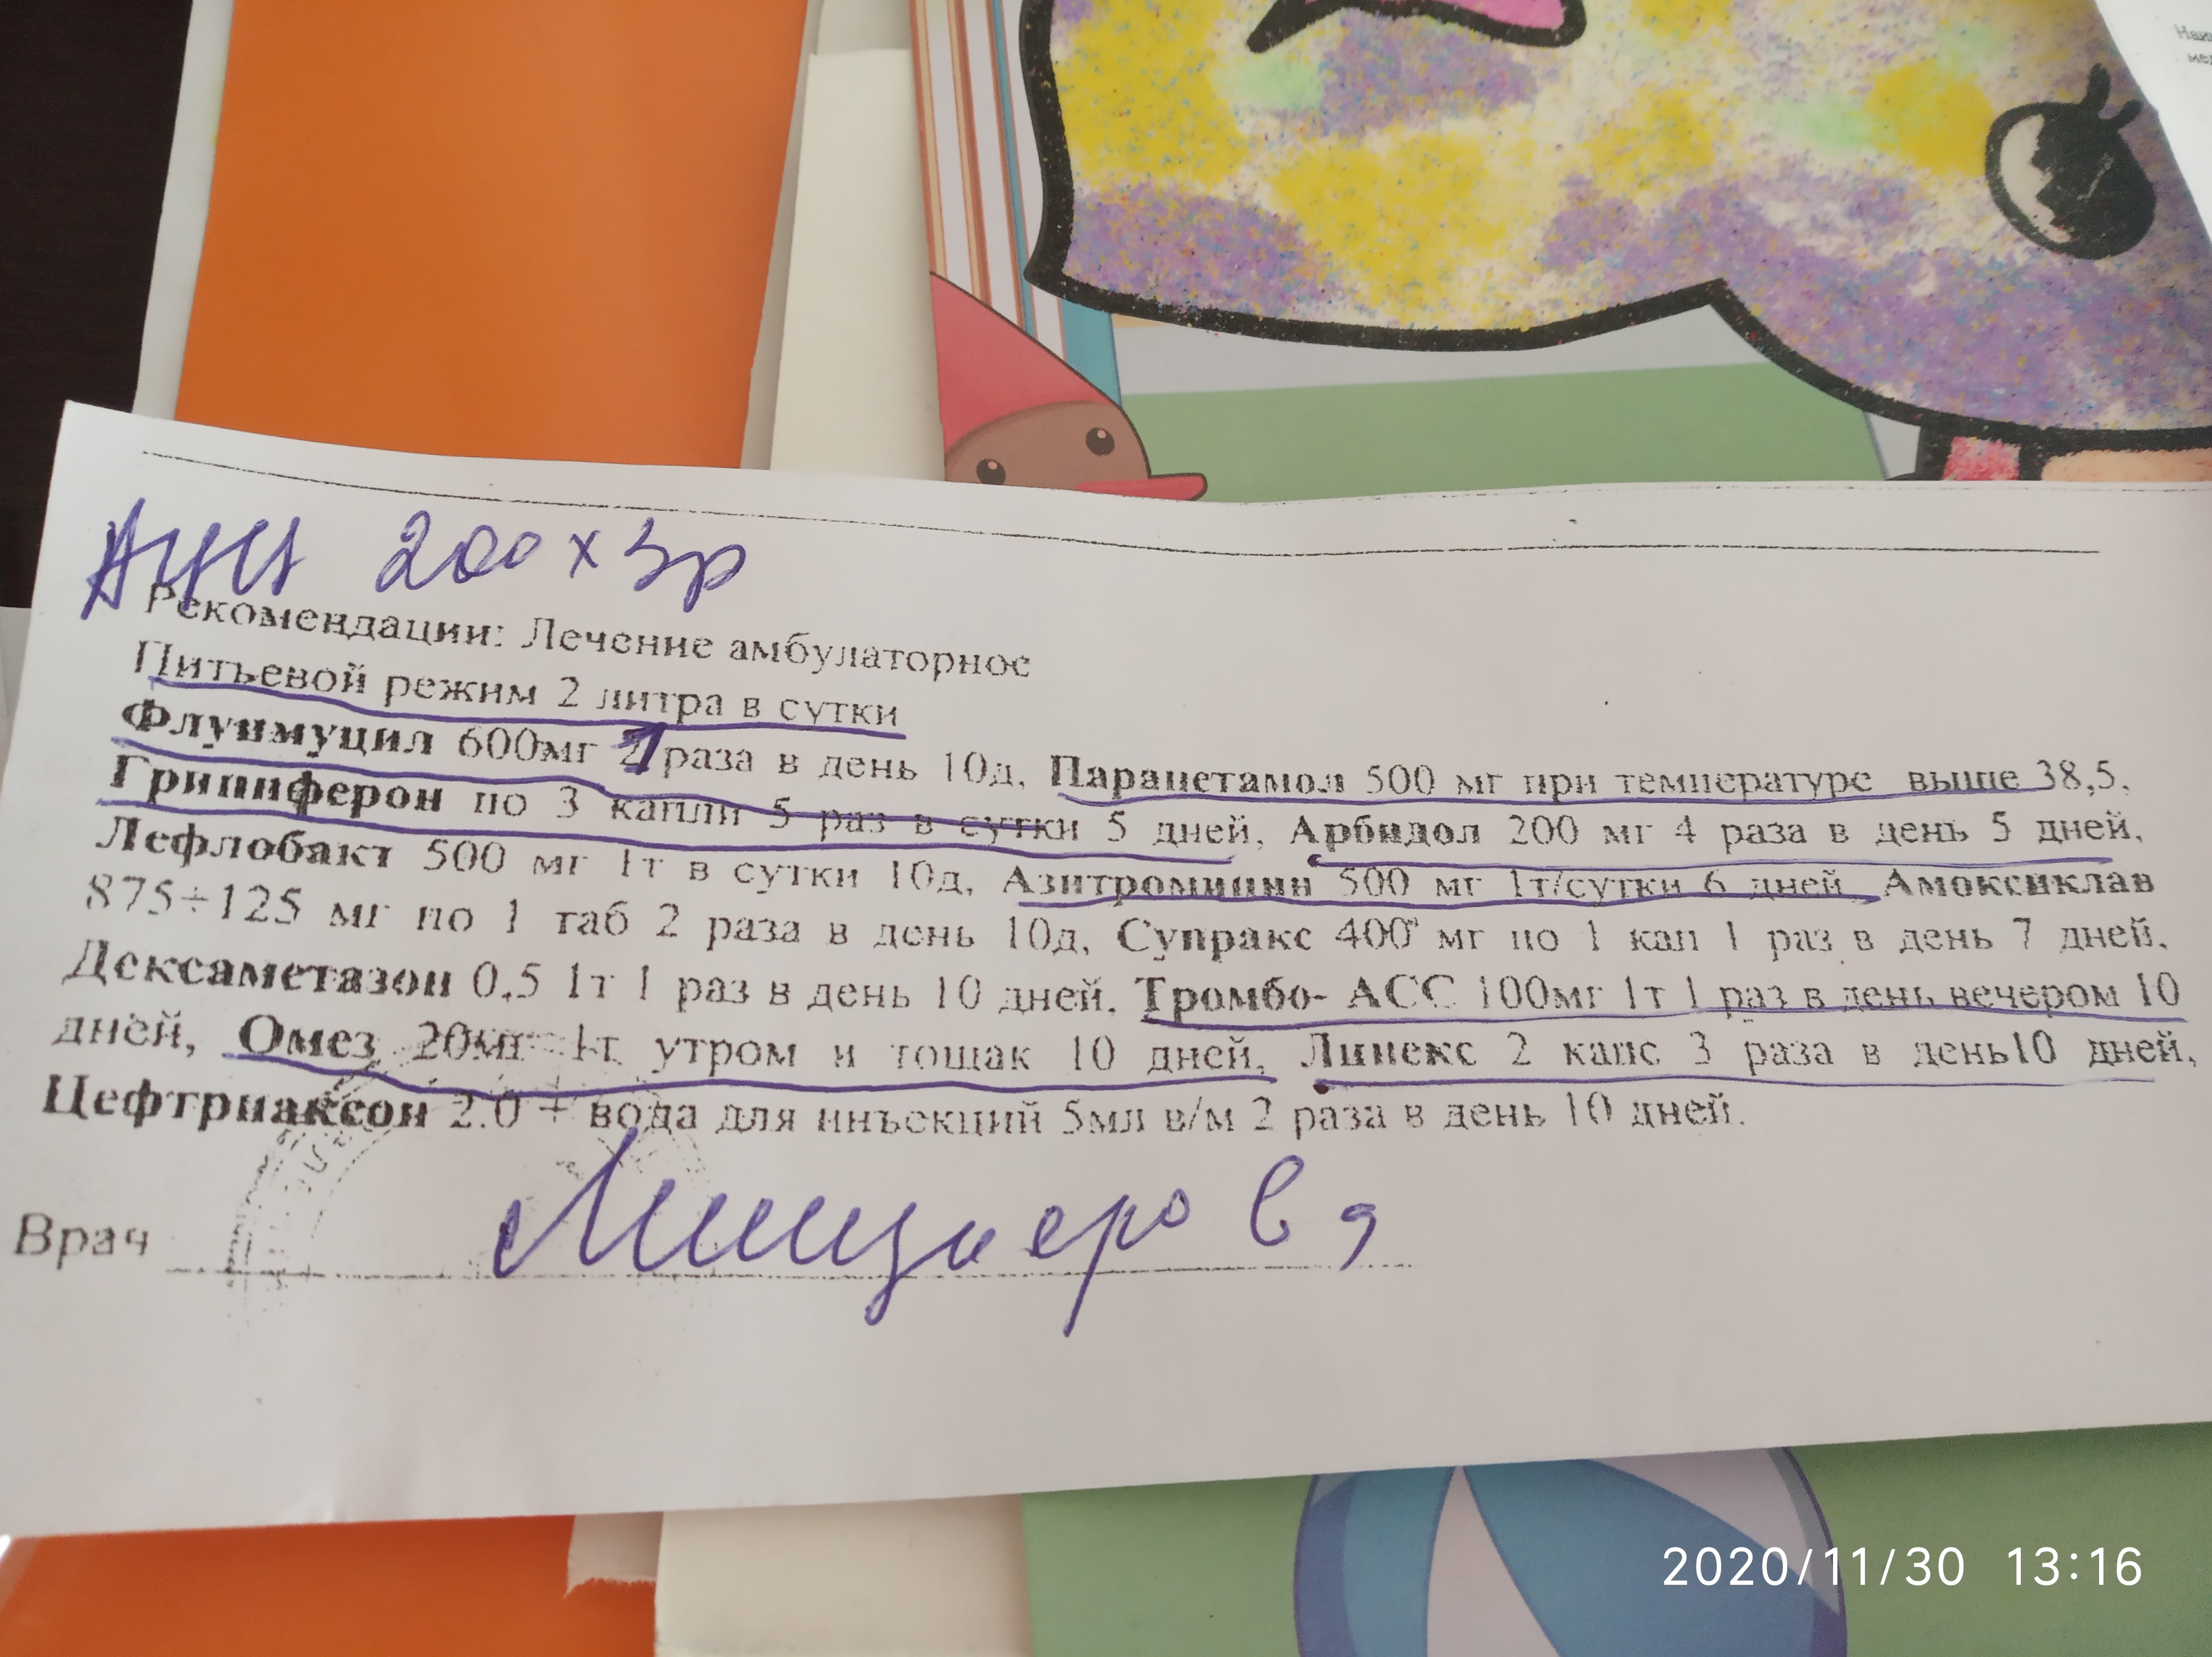 АЦЦ 200 х 3р
Рекомендации: Лечение амбулаторное
Питьевой режим 2 литра в сутки
Флуимуцил 600мг 1 раза в день 10д, Парацетамол 500 мг при температуре выше 38,5,
Грипиферон по 3 капли 5 раз в сутки 5 дней, Арбидол 200 мг 4 раза в день 5 дней,
Лефлобакт 500 мг 1т в сутки 10д, Азитромицин 500 мг 1т/сутки 6 дней Амоксиклав
875+125 мг по 1 таб 2 раза в день 10д, Супракс 400 мг по 1 кап 1 раз в день 7 дней,
Дексаметазон 0,5 1т 1 раз в день 10 дней, Тромбо- АСС 100мг 1т 1 раз в день вечером 10
дней, Омез 20мг 1т утром н тощак 10 дней, Линекс 2 капс 3 раза в день10 дней,
Цефтриаксон 2.0 + вода для инъекций 5мл в/м 2 раза в день 10 дней.
Врач
2020/11/30 13:16